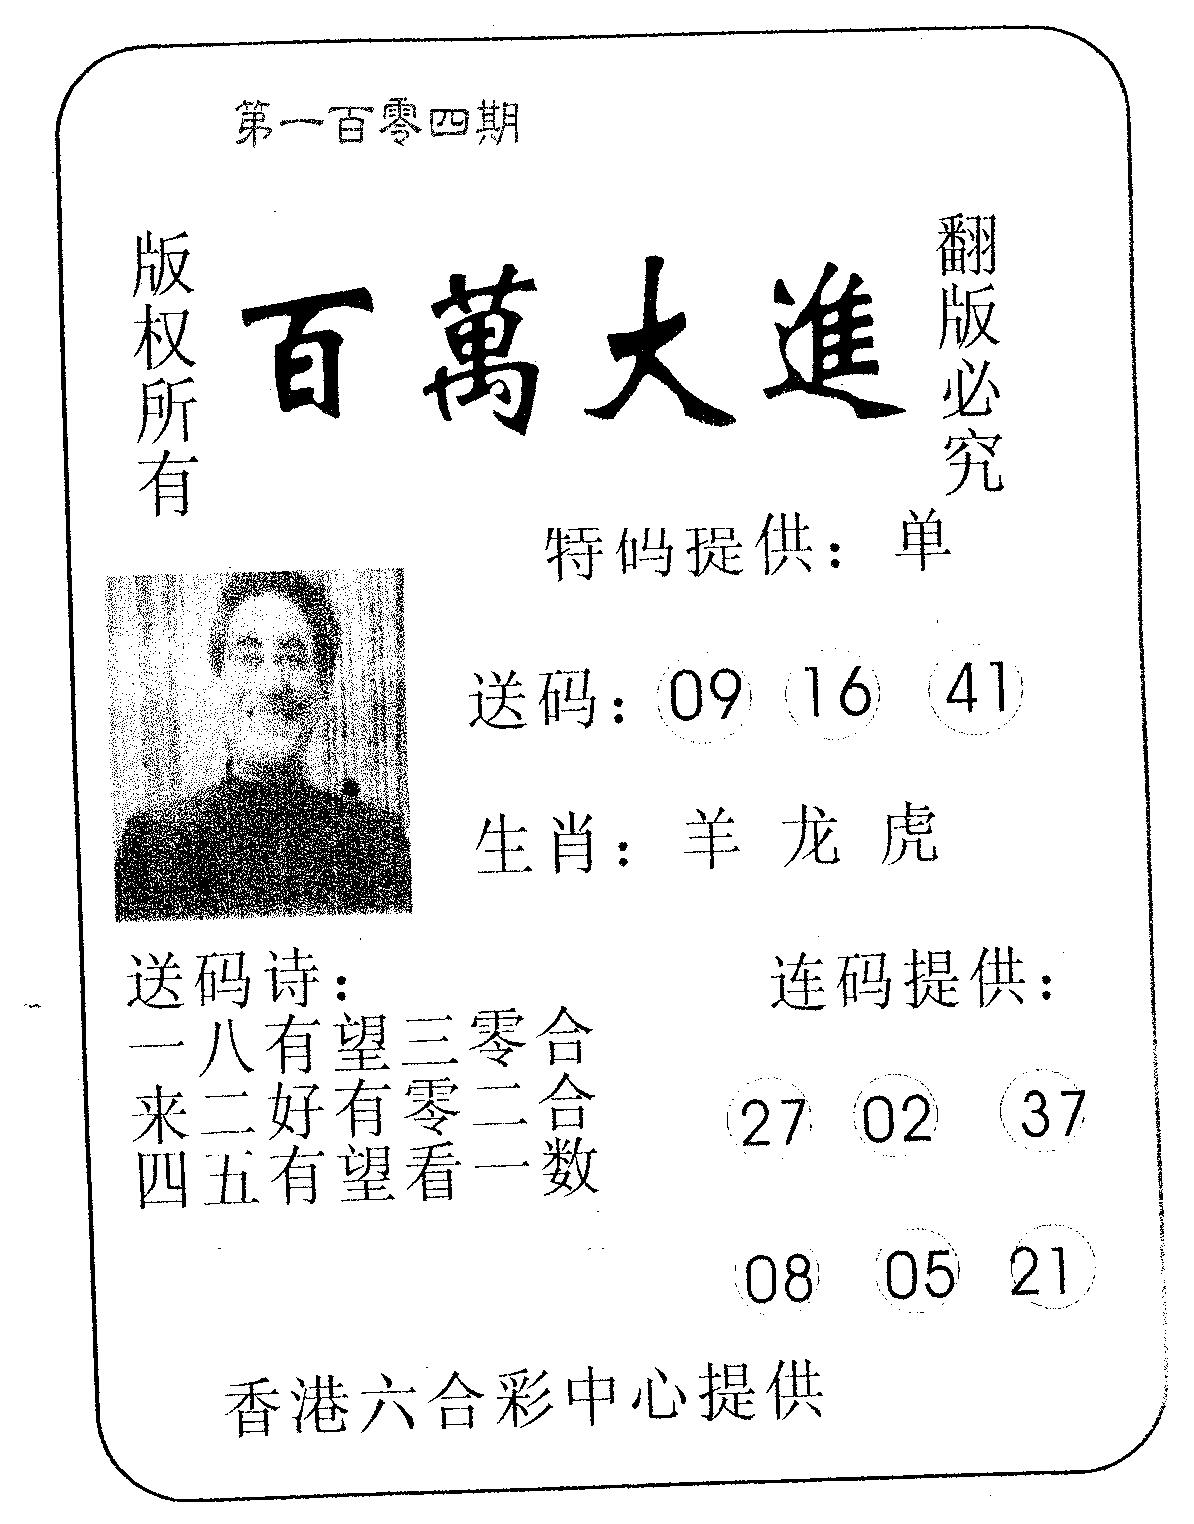 第一百零四期
版权所有
百萬大進
翻版必究
特码提供：单
送码：09 16 41
生肖：羊 龙 虎
送码诗：
一八有望三零合
来二好有零二合
四五有望看一数
连码提供：
27 02 37
08 05 21
香港六合彩中心提供